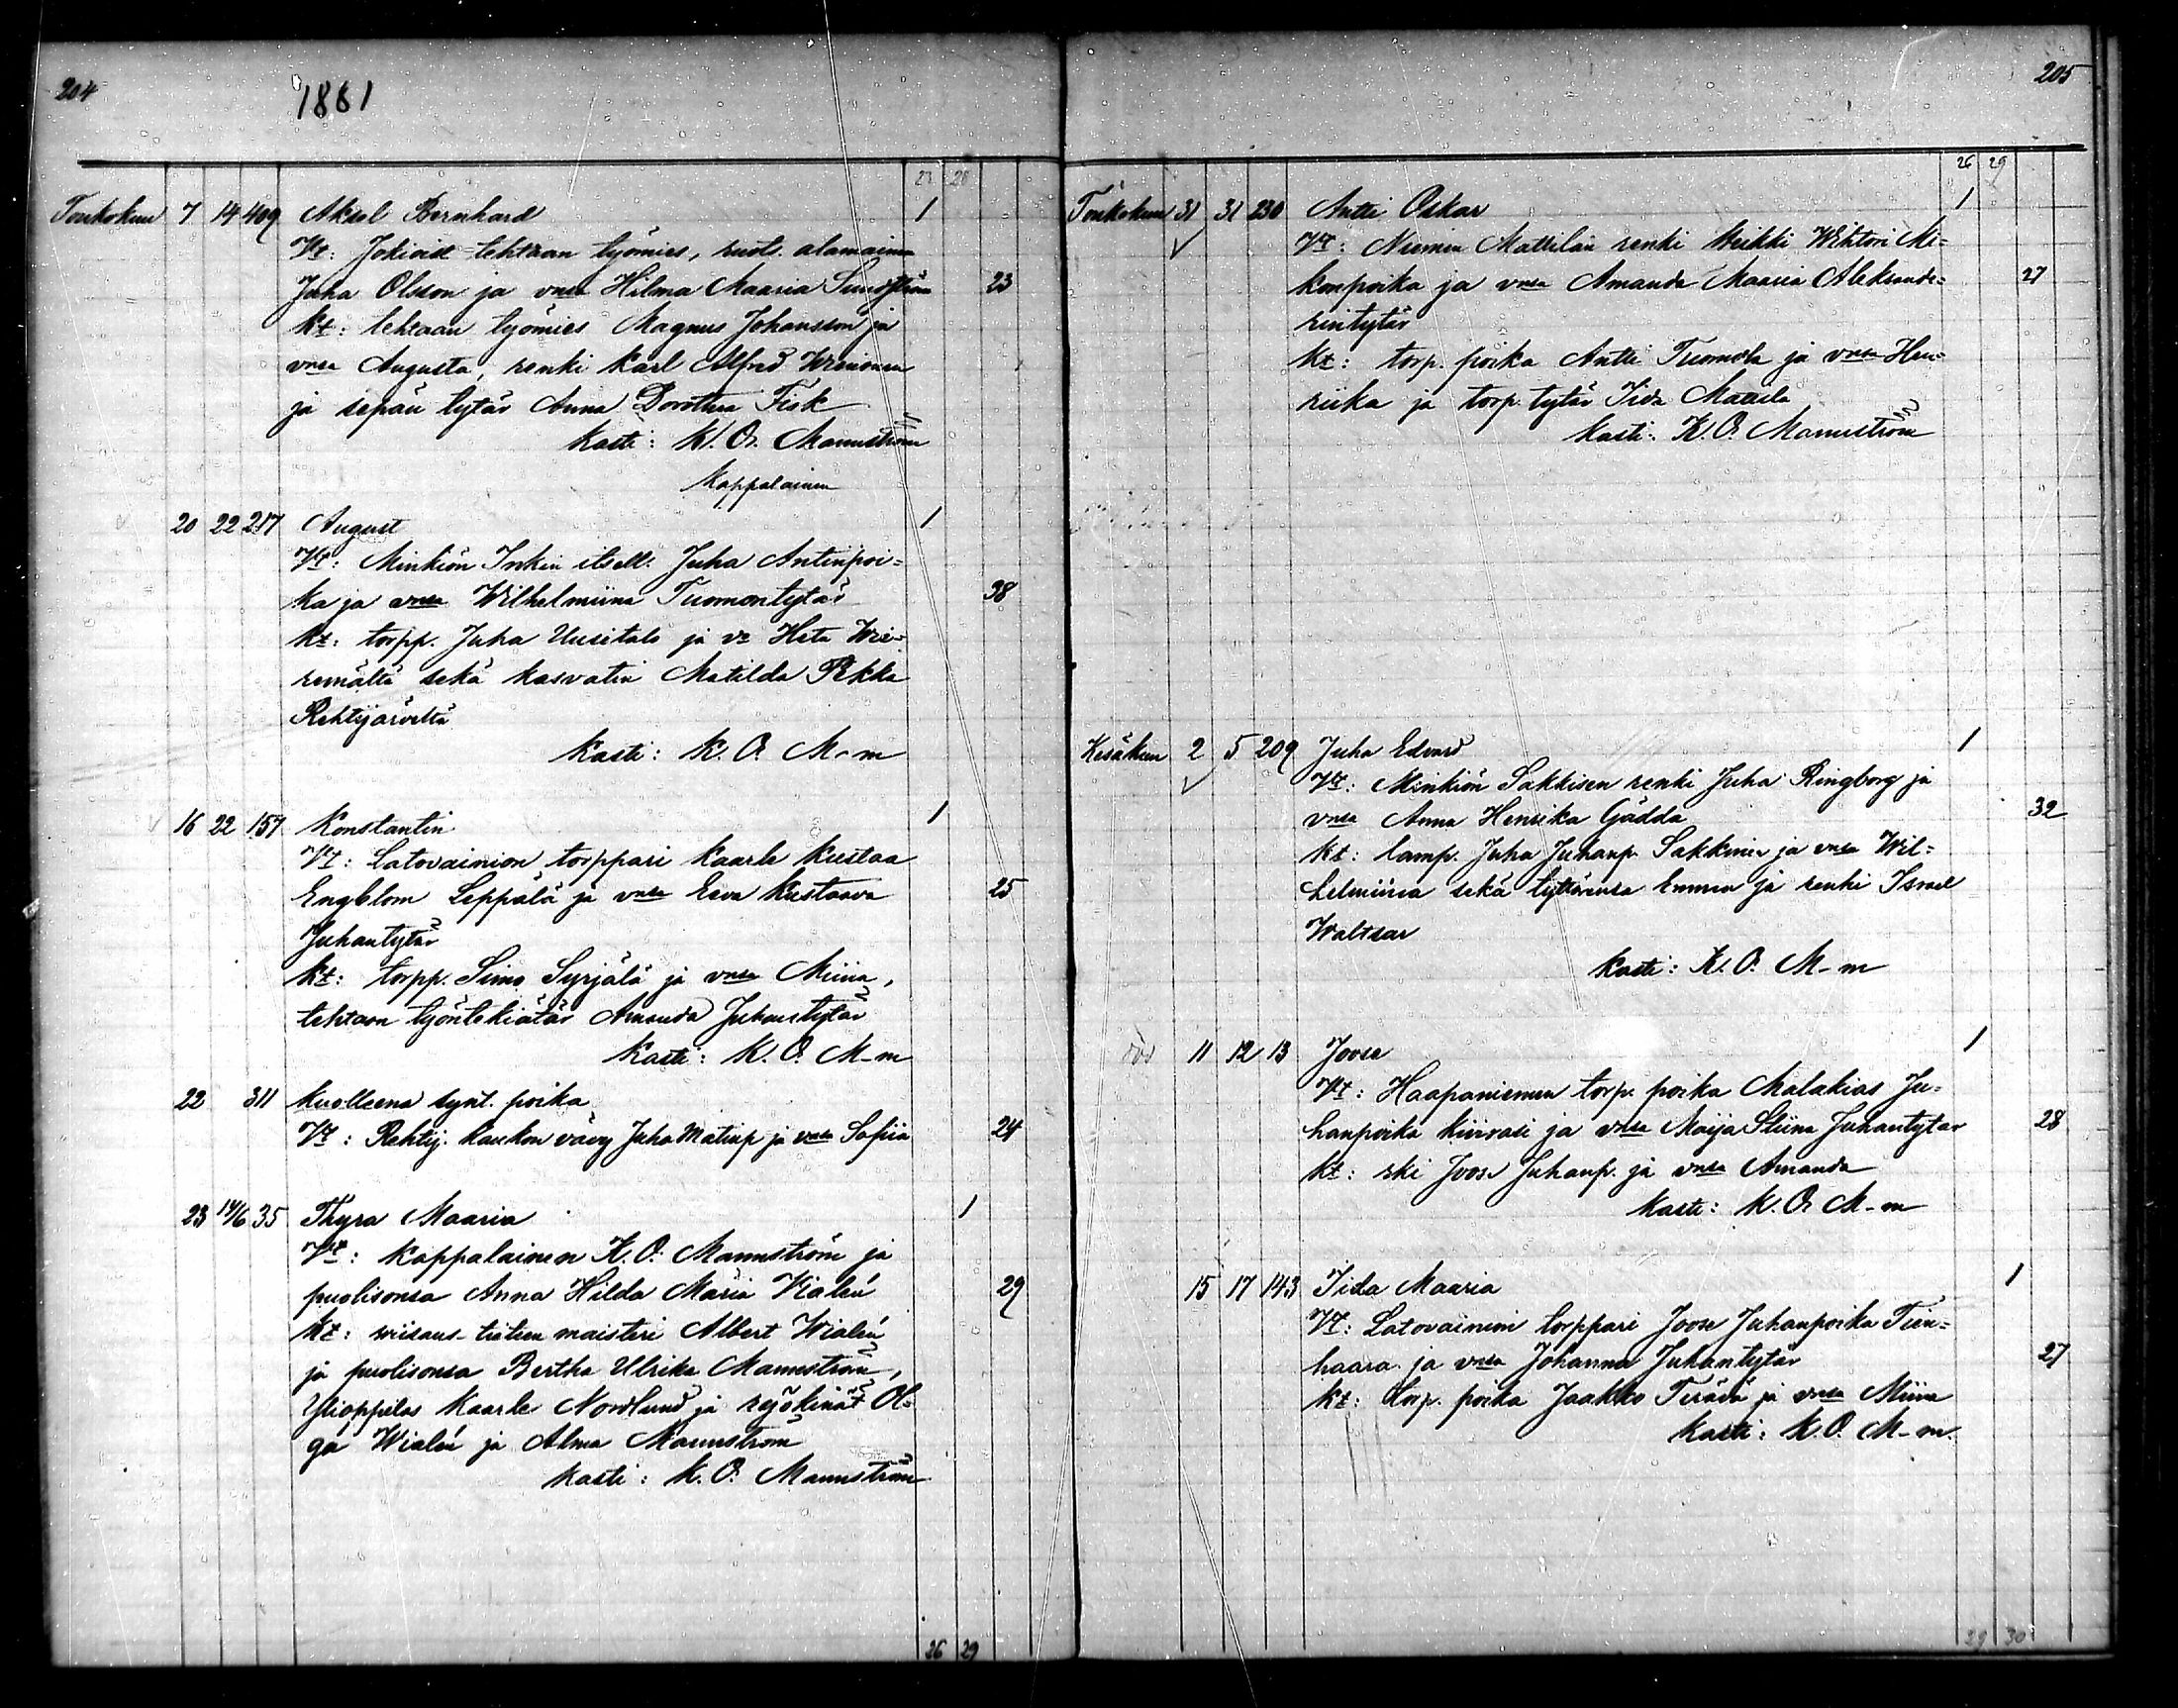 204
1881
23 28
Toukokuu 7 14 409 Aksel Bernhard 1
Vt: Jokioist tehtaan työmies, ruots. alamainen
Juha Olsson ja vnsa Hilma Maaria Sundström 23
kt: tehtaan työmies Magnus Johansson ja
vnsa Augusta, renki Karl Alfred
ja sepän tytär Anna Dorothea Fisk
Kasti: K. O. Mannström
kappalainen
20 22 217 August 1
Vt: Minkiön Inkin itsell. Juha Antinpoi=
ka ja vnsa Wilhelmiina Tuomontytär 38
kt: torpp. Juha Uusitalo ja vo Heta Wie=
remältä sekä kasvatin Matilda Pekka
Rehtijärveltä
Kasti: K. O. M-m
16 22 157 Konstantin 1
Vt: Latovainion torppari Kaarle Kustaa
Engblom Leppälä ja vnsa Eeva Kustaava 25
Juhantytär
kt: torpp. Simo Syrjälä ja vnsa Miina,
tehtaan työntekiätär Amanda Juhantytär
Kasti: K. O. M-m
22 311 Kuolleena synt. poika
Vt: Rehtij. Kaukon vävy Juha Matinp ja vnsa Sofiia 24
23 14/6 35 Thyra Maaria 1
Vt: Kappalainen K. O. Mannström ja
puolisonsa Anna Hilda Maria Wialén 29
kt: viisaus-tieteen maisteri Albert Wialén
ja puolisonsa Bertha Ulrika Mannström,
Ylioppilas Kaarle Nordlund ja ryökinät Ol=
ga Wialén ja Alma Mannström
Kasti: K. O. Mannström
26 29
205
26 29
Toukokuu 31 31 230 Antti Oskar 1
Vt: Niemen Mattilan renki Heikki Wihtori Mi=
konpoika ja vnsa Amanda Maaria Aleksande= 27
rintytär
kt: torp. poika Antti Tuomola ja vnsa Hen=
riika ja torp. tytär Iida Mattila
Kasti: K. O. Mannström
Kesäkuu 2 5 209 Juha Edvard 1
Vt: Minkiön Sakkisen renki Juha Ringborg ja
vnsa Anna Henrika Gädda 32
kt: lamp. Juha Juhanp. Sakkinen ja vnsa Wil=
helmiina sekä tyttärensä Emma ja renki Israel
Waltsar
Kasti: K. O. M-m
11 12 13 Joose 1
Vt: Haapaniemen torp. poika Malakias Ju=
hanpoika Kiivasi ja vnsa Maija Stiina Juhantytär 28
kt: rki Joose Juhanp. ja vnsa Amanda
Kasti: K. O. M-m
15 17 143 Iida Maaria 1
Vt: Latovainion torppari Joose Juhanpoika Tien=
haara ja vnsa Johanna Juhantytär 27
kt: torp. poika Jaakko Terävä ja vnsa Miina
Kasti: K. O. M-m.
29 30